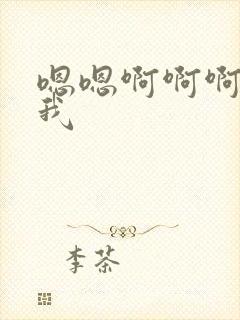 嗯嗯啊啊啊
我
李茶